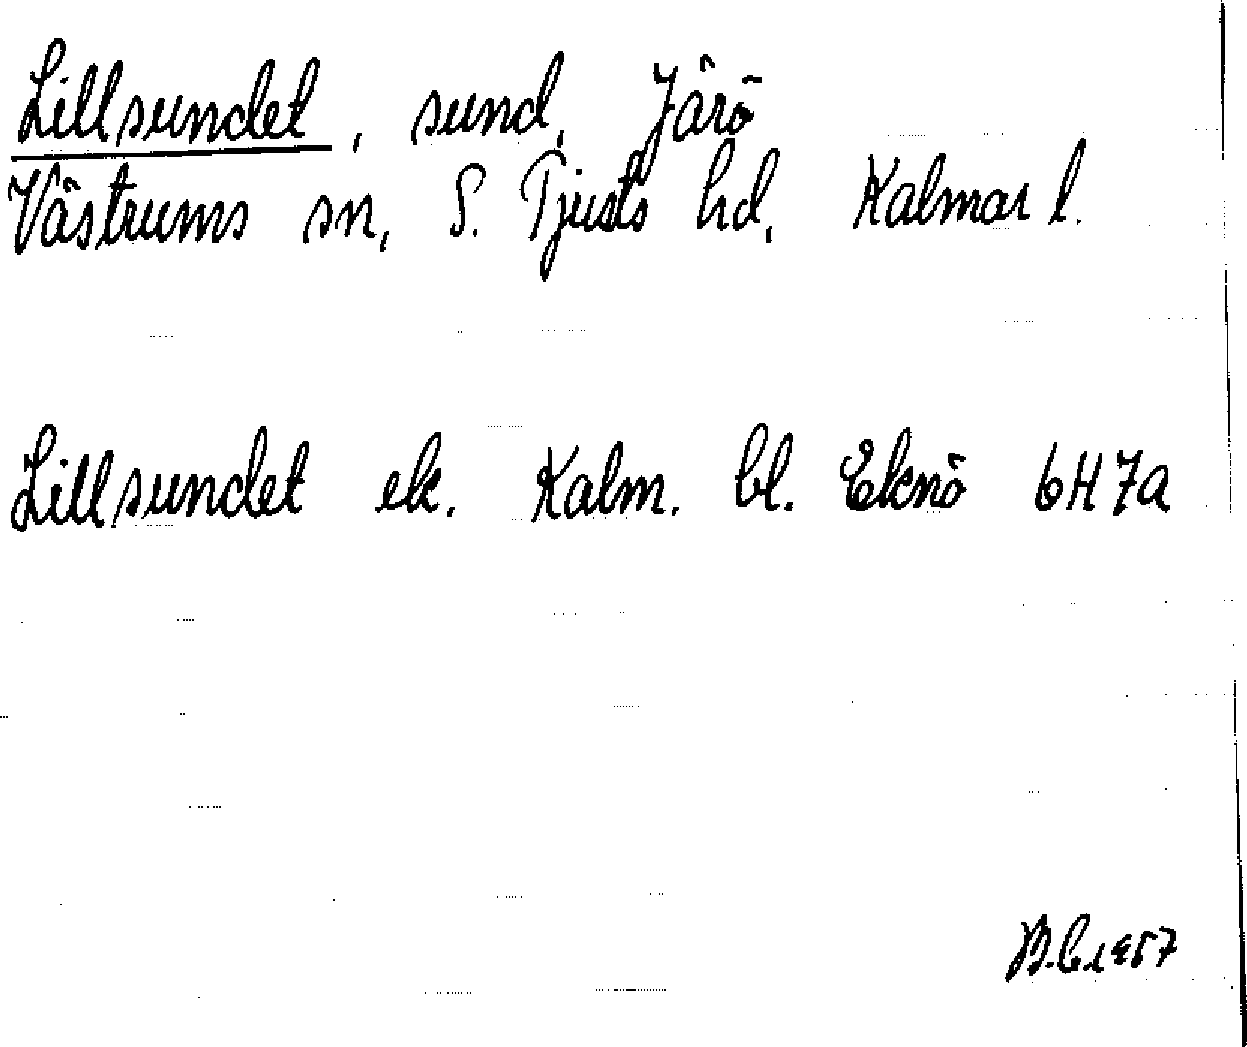 Lillsundet, sund, Järö
Västrums sn, S. Tjusts hd, Kalmar l.
Lillsundet ek. Kalm. bl. Eknö 6H7a